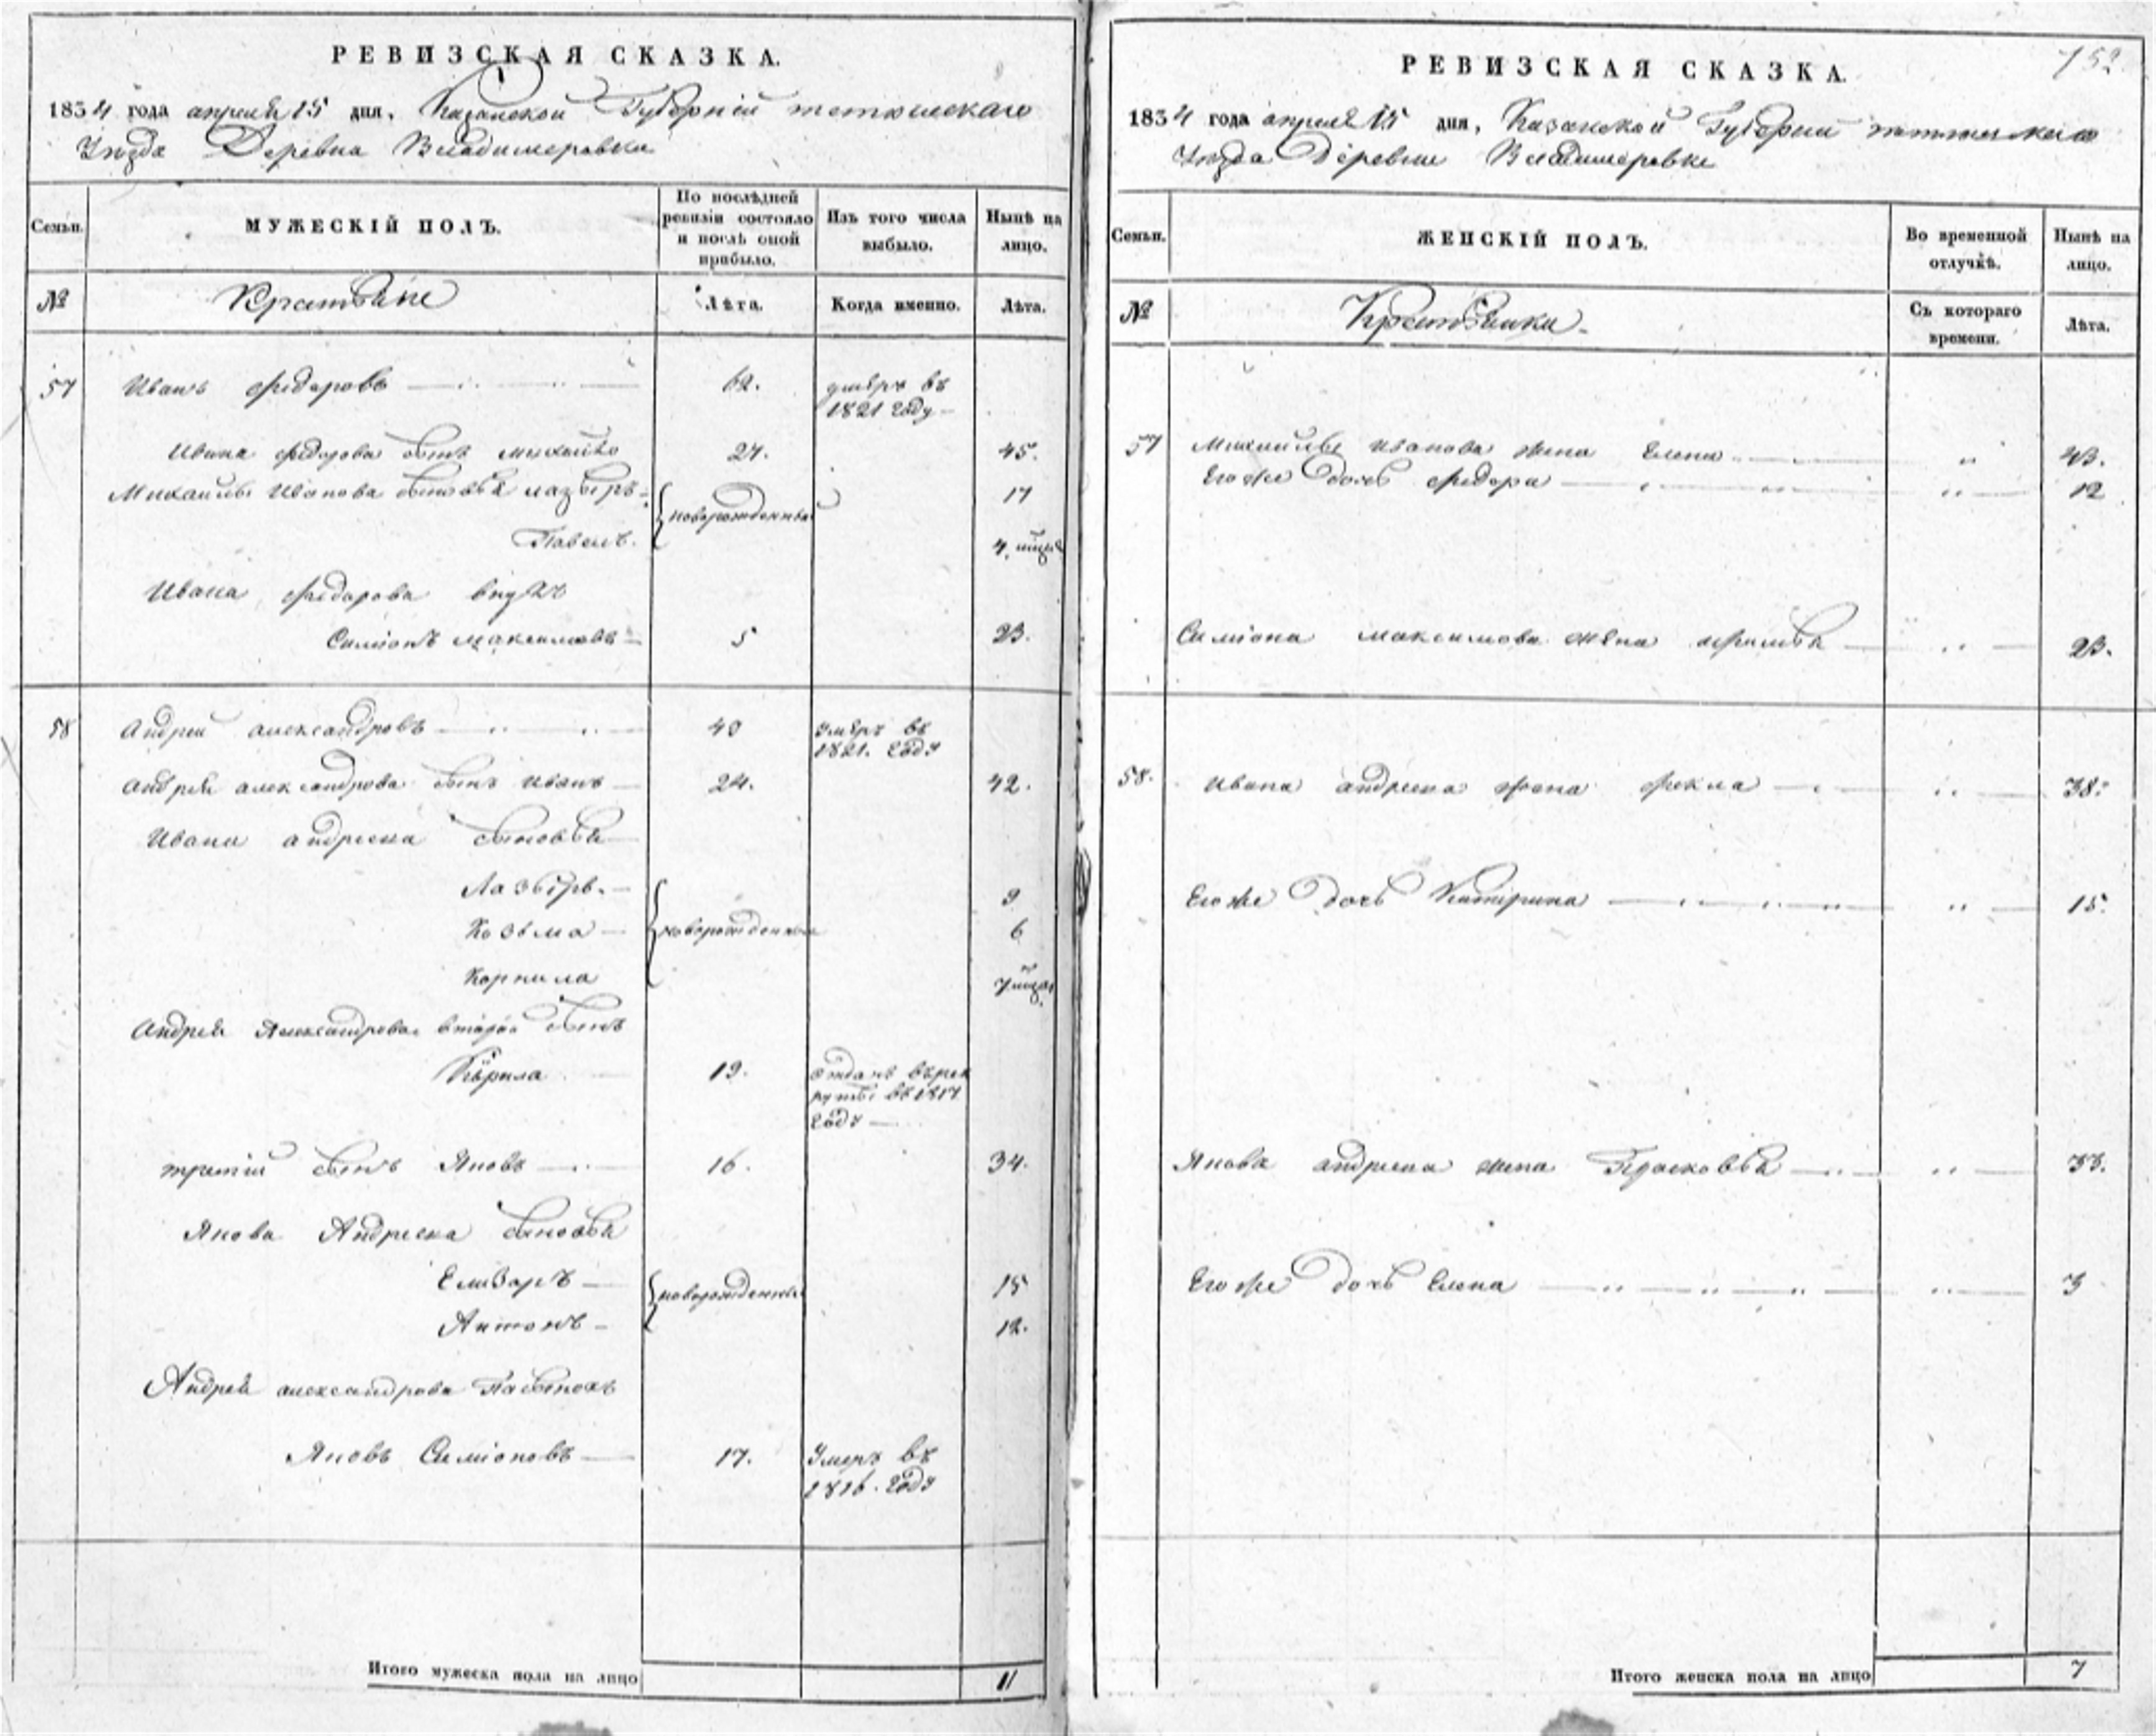 РЕВИЗСКАЯ СКАЗКА.
1834 года апреля 15 дня, Казанской Губернiи тетюшскаго
Уезда Деревна Владимеровки
Семьи.
МУЖЕСКIЙ ПОЛЪ.
По послѣдней ревизiи состояло и послѣ оной прибыло.
Изъ того числа выбыло.
Нынѣ на лицо.
№
Крестьяне
Лѣта.
Когда именно.
Лѣта.
57 Иванъ Федоровъ 62. умеръ въ
1821 году
Ивана Федорова сынъ Михайло 27. 45.
Михайлы Иванова сыновья лазырь 17
новорожденные
Павелъ. 4. мца
Ивана Федорова внукъ
Симiонъ максимовъ 5 23.
58 Андрей александровъ 43 Умеръ въ
1821. Году
андрея александрова сынъ иванъ 24. 42.
Ивана андреева сыновья
Лазырь. 9
Козьма новорожденные 6
Корнила 7 мца
Андрея Александрова второй сынъ
Кирила 19. Отданъ върек
руты въ 1817
Году
третiй сынъ Яковъ 16. 34.
Якова Андреева сыновья
Елизаръ новорожденные 15
Антонъ 12.
Андрея александрова Пасынокъ
Яковъ Симiоновъ 17. Умеръ въ
1816. Году
Итого мужеска пола на лицо 11
752
РЕВИЗСКАЯ СКАЗКА.
1834 года апреля 15 дня, Казанской Губернии тетюшскаго
Уезда Деревни Владимеровке
Семьи.
ЖЕНСКIЙ ПОЛЪ.
Во временной отлучкѣ.
Нынѣ на лицо.
№
Крестьянки
Съ котораго времени.
Лѣта.
57 Михайлы Иванова жена Елена 43.
Егоже дочь Федора 12
Симiона максимова жена афимья 23.
58. Ивана андреева жена Фекла 38.
Егоже дочь Катирина 15.
Якова андреева жена Прасковья 33.
Егоже дочь Елена 3
Итого женска пола на лицо 7